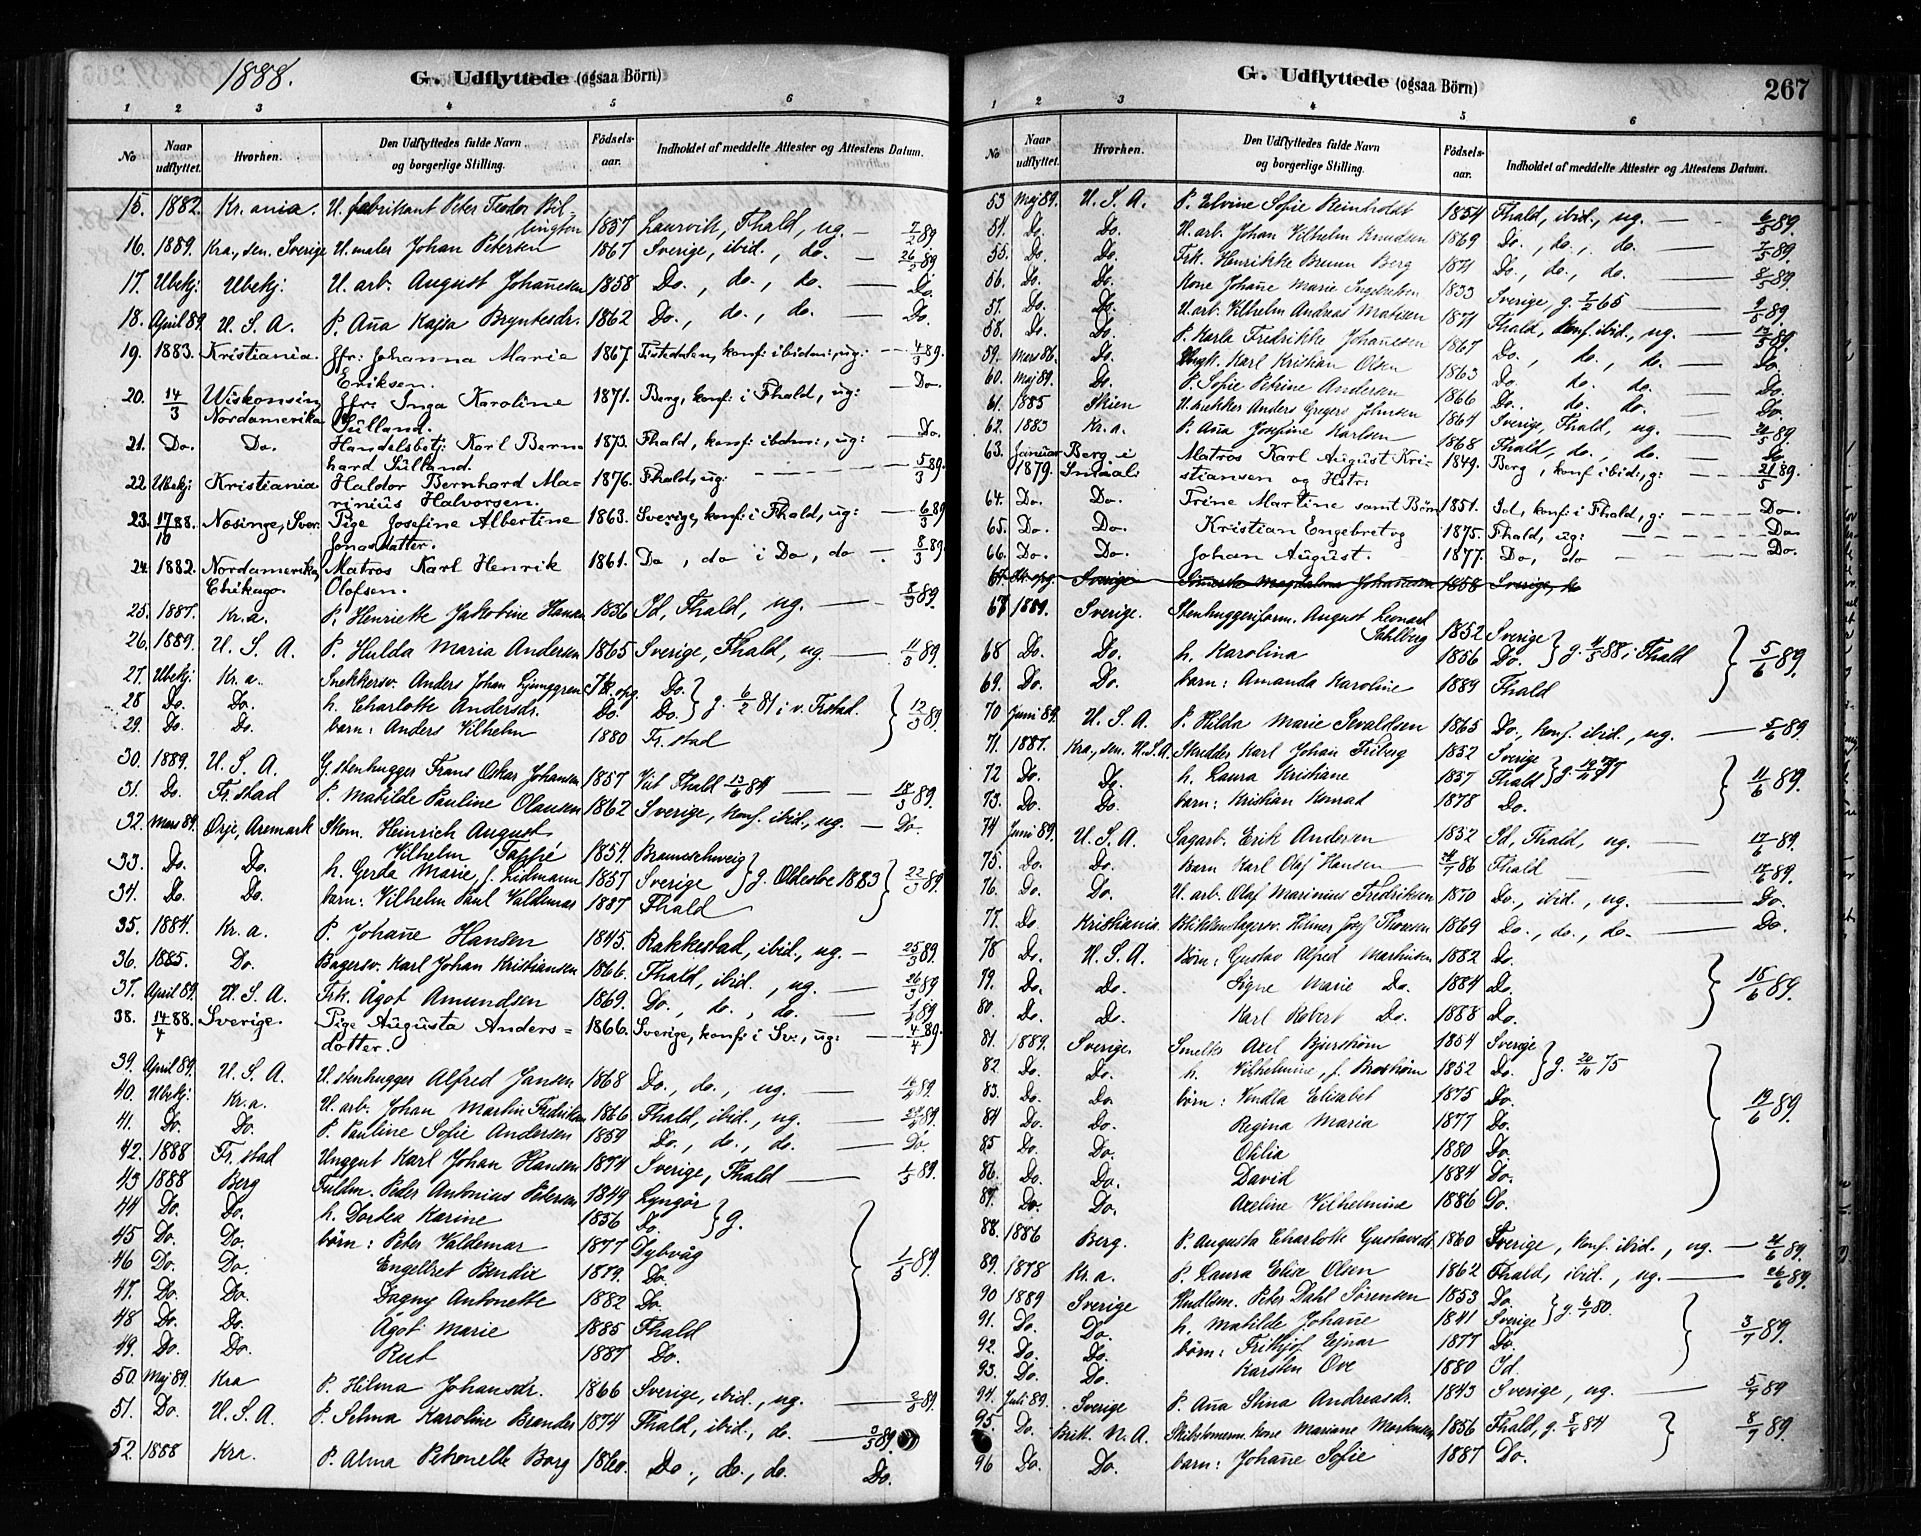 1888.
G. Udflyttede (ogsaa Börn)
1 2 3 4 5 6
No
Naar udflyttet.
Hvorhen.
Den Udflyttedes fulde Navn og borgerlige Stilling.
Födselsaar.
Indholdet af meddelte Attester og Attestens Datum.
15. 1882. Kr.ania. U. fabrikant Peter Teodor Bil-
lington 1857 Laurvik, Fhald, ug. — 7/2 89.
16. 1889. Kra., sen. Sverige U. maler Johan Petersen 1867 Sverige, ibid., do. — 26/2 89
17. Ubekj: Ubekj: U. arb. August Johan̄esen 1858 Do., do., do. — Do.
18. April 89. U. S. A. P. An̄a Kajsa Bryntesdr. 1862 Do., do., do. — Do.
19. 1883. Kristiania. Jfr: Johanna Marie 1867 Tistedalen, konf: ibidm:, ug: — 4/3 89.
Eriksen.
20. 14/3 Wiskonsin Jfr: Inga Karoline 1871. Berg, konf: i Fhald, ug: — Do.
Nordamerika Sülland.
21. Do. Do. Handelsbetj: Karl Bern- 1873. Fhald, konf: ibidm:, ug: — Do.
hard Sülland.
22. Ubekj: Kristiania. Haldor Bernhard Ma- 1876. Fhald, ug: — 5/3 89.
rinius Halvorsen.
23. 17/10 88. Nosinge, Sver. Pige Josefine Albertine 1863. Sverige, konf: i Fhald, ug: — 6/3 89
Jonasdatter.
24. 1882. Nordamerika, Matros Karl Henrik 1861. Do, do i Do, do — 8/3 89.
Chikago. Olofsen.
25. 1887. Kr.a. P. Henriette Jakobine Hansen 1856 Id, Fhald, ug. — 8/3 89.
26. 1889. U. S. A. P. Hulda Maria Andersen 1865 Sverige, Fhald, ug — 11/3 89.
27. Ubekj: Kr.a. Snekkersv. Anders Johan Ljunggren Ik. opg. Do.
28 Do. Do. h. Charlotte Andersdr. Do. Do. } g. 6/2 81 i v. Frstad. 12/3 89.
29. Do. Do. barn: Anders Vilhelm 1880 Fr.stad
30. 1889. U. S. A. G. stenhugger Frans Oskar Johansen 1857 Vit Fhald 13/6 84
31. Do. Fr.stad P. Matilde Pauline Olausen 1862 Sverige, konf. ibid., ug. — 18/3 89.
32. Mars 89. Ørje, Aremark Skom. Heinrich August Do.
Vilhelm Tappé 1854. Braunschweig
33. Do. Do. h. Gerda Marie, f. Lidmann 1857 Sverige } g. Oldesloe 1883 22/3 89.
34. Do. Do. barn: Vilhelm Paul Valdemar 1887 Fhald
35. 1884. Kr.a. P. Johan̄e Hansen 1845. Rakkestad, ibid., ug. — 25/3 89.
36. 1885. Do. Bagersv. Karl Johan Kristiansen 1866. Fhald, ibid., ug. — 26/3 89
37. April 89. U. S. A. Frk. Ågot Amundsen 1869. Do., do., do. — 1/4 89
38. 14/4 88. Sverige. Pige Augusta Anders- 1866. Sverige, konf: i Sv:, ug: — 4/4 89.
dotter.
39. April 89. U. S. A. U. stenhugger Alfred Jansen 1868 Do., do., ug. — 89.
40. Ubekj: Kr.a. U. arb. Johan Martin Fredriksen 1866 Fhald, ibid., ug. — 89.
41. Do. Do. P. Pauline Sofie Andersen 1859 Do., do., do. — Do
42. 1888 Fr.stad Unggut Karl Johan Hansen 1874 Sverige, Fhald — 1/5 89.
43 1888 Berg Fuldm. Peder Antonius Petersen 1849 Lyngør
44 Do. Do. h. Dortea Karine 1856 Do. } g.
45 Do. Do. børn: Peter Valdemar 1877 Dybvåg
46 Do. Do. Engelbret Bendix 1879. Do. 1/5 89.
47. Do. Do. Dagny Antonette 1882 Do.
48 Do. Do. Ågot Marie 1885 Fhald
49. Do. Do. Rut 1887 Do.
50. Maj 89. Kra P. Hilma Johansdr. 1866 Sverige, ibid., ug. — 2/5 89.
51. Do. U. S. A. P. Selma Karoline Brander 1874 Fhald, ibid., do. — 3/5 89.
52. 1888 Kra. P. Alma Petronelle Borg 1860. Do., do., do. Do.
G. Udflyttede (ogsaa Börn)
267
1 2 3 4 5 6
No
Naar udflyttet.
Hvorhen.
Den Udflyttedes fulde Navn og borgerlige Stilling.
Födselsaar.
Indholdet af meddelte Attester og Attestens Datum.
53 Maj 89. U. S. A. P. Elvine Sofie Reinholdt 1854 Fhald, ibid., ug. — 6/5 89.
54. Do. Do. U. arb. Johan Vilhelm Knudsen 1869 Do., do., do. — 7/5 89.
55. Do. Do. Frk. Henrikke Bruun Berg 1871 Do., do., do. — 8/5 89.
56. Do. Do. Kone Johan̄e Marie Ingebretsen 1833 Sverige, g. 7/2 65 — 9/5 89
57. Do. Do. U. arb. Vilhelm Andreas Matisen 1871 Fhald, konf. ibid., ug. — 89.
58. Do. Do. P. Karla Fredrikke Johan̄esen 1867 Do., do., do. — Do.
59. Mars 86. Do. Ungk. Karl Kristian Olsen 1863 Do. do. do. — Do.
60. Maj 89. Do. P. Sofie Petrine Andersen 1866 Do. do. do. — Do.
61. 1885 Skien U. trekker Anders Gregers Johnsen 1864 Sverige, Fhald, ug. — 89.
62. 1883 Kr.a. P. An̄a Josefine Karlsen 1868 Fhald, do., do. — Do
63. Januar Berg i Matros Karl August Kri- 1849. Berg, konf ibid:, g: — 21/5 89.
1879. Småal: stiansen og Hstr:
64. Do. Do. Trine Martine samt Børn 1851. Id, konf: i Fhald, g: — Do.
65. Do. Do. Kristian Engebret og 1875. Fhald, ug: — Do.
66. Do. Do. Johan August. 1877. Do, do — Do.
67. Ik. opg. Sverige Magdalena Johan̄esen 1858 Sverige,
67 1889. Sverige. Stenhuggeriform. August Leonard
Sahlberg 1852 Sverige
68 Do. Do. h. Karolina 1856 Do. } g. 4/5 88 i Fhald 5/6 89.
69. Do. Do. barn: Amanda Karoline 1889 Fhald
70 Juni 89. U. S. A. P. Hilda Marie Svaldsen 1865 Do., konf. ibid., ug. — 5/6 89
71. 1887. Kra., sen. U.S.A. Skredder Karl Johan Friberg 1852 Sverige
72 Do. Do. h. Laura Kristiane 1857 Fhald } g. 77 11/6 89.
73. Do. Do. barn: Kristian Konrad 1878 Do.
74 Juni 89. U. S. A. Sagarb. Erik Andersen 1852 Id, Fhald, ug. — 17/6 89.
75. Do. Do. Barn Karl Olaf Hansen 86 Fhald — 17/6 89.
76. Do. Do. U. arb. Olaf Marinius Fredriksen 1870 Do., ibid., ug. — Do.
77. Do Kristiania. Blikkenslagersv. Hilmar Josef Thoresen 1869 Do., do., do. — Do.
78 Do. U. S. A. Børn: Gustav Alfred Martinsen 1882 Do.
79. Do. Do. Signe Marie Do. 1884 Do. 18/6 89.
80. Do. Do. Karl Robert Do. 1888 Do.
81. 1889. Sverige. Smelte Axel Bjurstrøm 1854 Sverige
82 Do. Do. h. Vilhelmine, f. Boström 1852 Do. } g. 20/10 75
83. Do. Do. børn: Vendla Elisabet 1875 Do.
84 Do. Do. Regina Maria 1877 Do. 19/6 89.
85 Do. Do. Otilia 1880 Do.
86. Do. Do. David 1884 Do.
87. Do. Do. Axeline Vilhelmine 1886 Do.
88. 1886 Berg. P. Augusta Charlotte Gustavsdr. 1860 Sverige, konf. ibid., ug. — 21/6 89.
89. 1878 Kr.a. P. Laura Elise Olsen 1862 Fhald, ibid., ug. — 26/6 89.
90 1889 Sverige Hndlsm. Peter Dahl Sørensen 1853 Do.
91. Do. Do. h. Matilde Johan̄e 1841 Sverige } g. 6/1 80.
92. Do. Do. børn: Fritjof Ejnar 1877 Do. 3/7 89.
93. Do. Do. Karsten Ove 1880 Id.
94. Juli 89. Sverige P. An̄a Stina Andreasdr. 1843 Sverige, ug. — 5/7 89
95. Do. Britt. N. A. Skibstømerm. kone Mariane Martinsen 1856 Fhald, g. 8/8 84 8/7 89.
96 Do. Do. barn: Johan̄e Sofie 1887 Do.